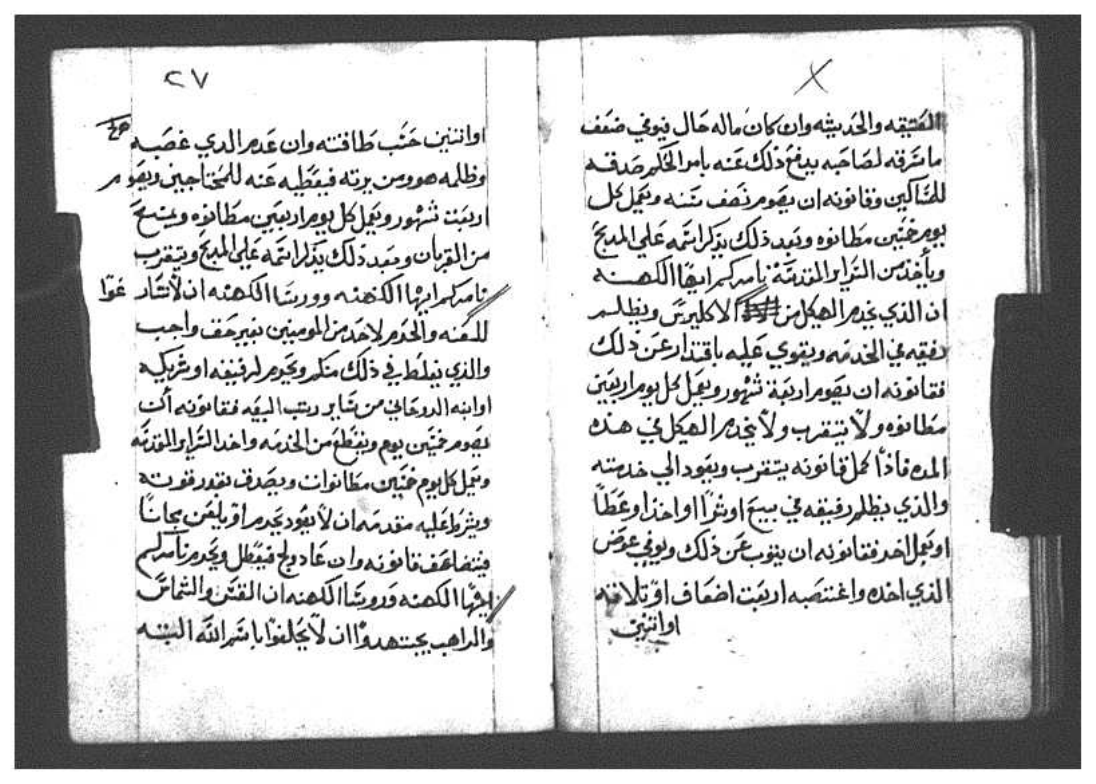 العتيقه والحديثه وان كان ماله حال فيوفي ضعف
ما سرقه لصاحبه يدفع ذلك عنه بامر الحكم صدقه
للمساكين وقانونه ان يصوم نصف سنه ويعمل كل
يوم خمسين مطانوه وبعد ذلك يذكر اسمه علي المدبح
وياخد من السراير المقدسة نامركم ايها الكهنه
ان الذي يخدم الهيكل من الاكليرس ويظلم
رفيقه في الخدمه ويقوي عليه باقتدار عن ذلك
فقانونه ان يصوم اربعة شهور ويعمل كل يوم اربعين
مطانوه ولا يتقرب ولا يخدم الهيكل في هذه
المده فاذا كمل قانونه يتقرب ويعود الي خدمته
والذي يظلم رفيقه في بيع او شرا او اخذ او عطا
او يعمل اخد فقانونه ان يتوب عن ذلك ويوفي عوض
الذي اخده واغتصبه اربعت اضعاف او تلاته
او اتنين
٢٧
او اتنين حسب طاقته وان عدم الدي غصبه
وظلمه هو ومن يرته فيعطيه عنه للمحتاجين ويصوم
اربعت شهور ويعمل كل يوم اربعين مطانوه ويمنع
من القربان وبعد ذلك يذكر اسمه علي المدبح ويتقرب
نامركم ايها الكهنه ورويسا الكهنه ان لا تسارعوا
للعنه والحرم لاحد من المومنين بغير حق واجب
والذي يغلط في ذلك منكم ويحرم لرفيقه او شريكه
او ابنه الروحاني من ساير رتب البيعه فقانونه ان
يصوم خمسين يوم ويقطع من الخدمه واخد السراير المقدسه
ويعمل كل يوم خمسين مطانوات ويصدق بقدر قوته
ويشرط عليه مقدمه ان لا يعود يحرم او يلعن مجانا
فيتضاعف قانونه وان عاد ولج فيقطل ويحرم نامركم
ايها الكهنه ورويسا الكهنه ان القس والشماس
والراهب يجتهدوا ان لا يحلفوا باسم الله البته